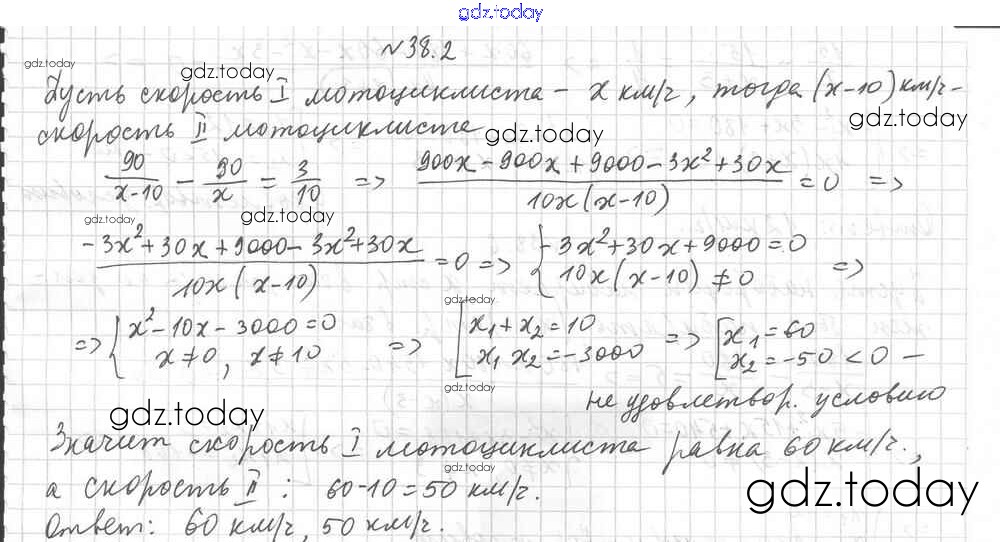 gdz.today
№38.2
gdz.today gdz.today
Пусть скорость I мотоциклиста – x км/ч, тогда (x-10) км/ч –
gdz.today
скорость II мотоциклиста
gdz.today
90/(x-10) - 90/x = 3/10 => (900x - 900x + 9000 - 3x² + 30x)/(10x(x-10)) = 0 =>
gdz.today gdz.today
(-3x² + 30x + 9000 - 3x² + 30x)/(10x(x-10)) = 0 => { -3x² + 30x + 9000 = 0
10x(x-10) ≠ 0 =>
gdz.today
=> { x² - 10x - 3000 = 0 => [ x₁ + x₂ = 10 => [ x₁ = 60
x ≠ 0, x ≠ 10 x₁ x₂ = -3000 x₂ = -50 < 0 –
gdz.today
не удовлетвор. условию
gdz.today
Значит скорость I мотоциклиста равна 60 км/ч.,
gdz.today
а скорость II : 60-10=50 км/ч.
gdz.today
Ответ: 60 км/ч, 50 км/ч.